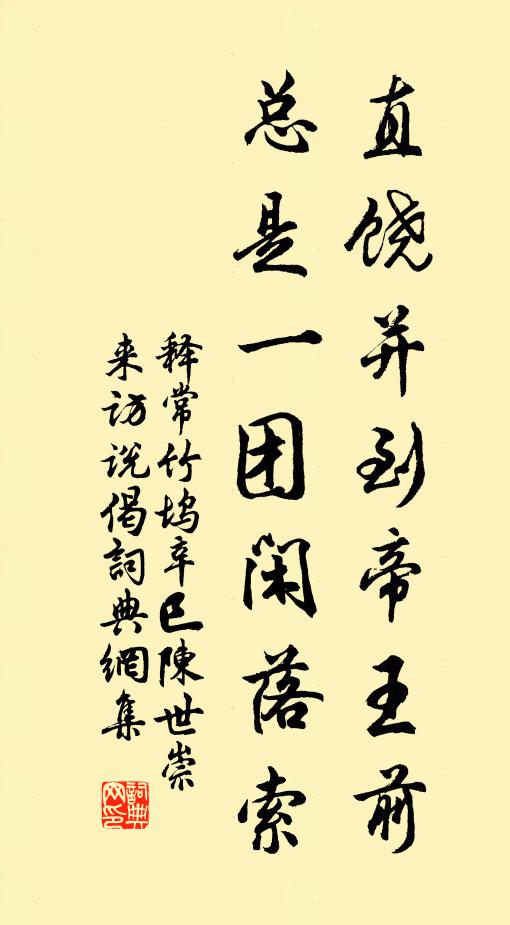 直饶并到帝王前
总是一团闲落索
释常竹坞辛巳陈世崇
来访说偈词典网集
词典网印